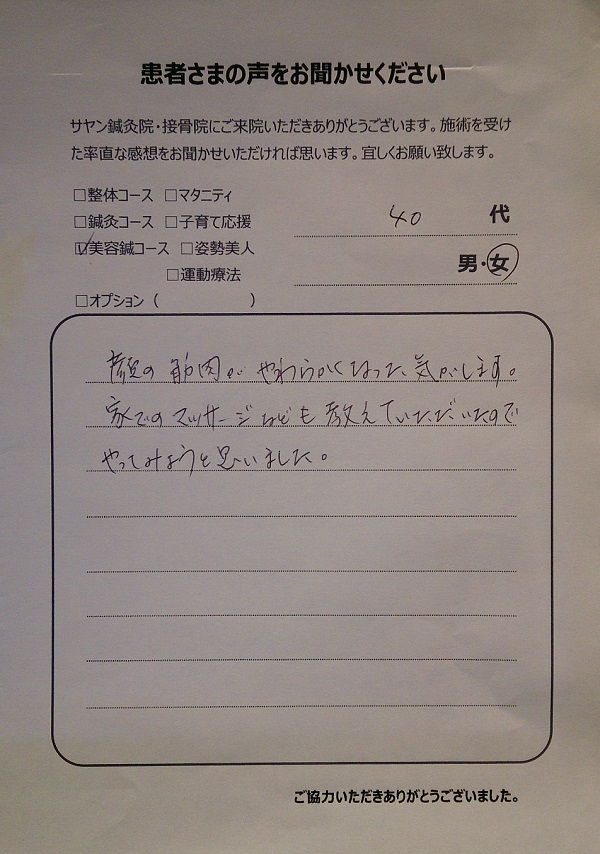 患者さまの声をお聞かせください
サヤン鍼灸院・接骨院にご来院いただきありがとうございます。施術を受け
た率直な感想をお聞かせいただければ思います。宜しくお願い致します。
□整体コース □マタニティ
□鍼灸コース □子育て応援
40 代
☑美容鍼コース □姿勢美人
男・女
□運動療法
□オプション（　　　　　）
顔の筋肉がやわらかくなった気がします。
家でのマッサージなども教えていただいたので
やってみようと思いました。
ご協力いただきありがとうございました。